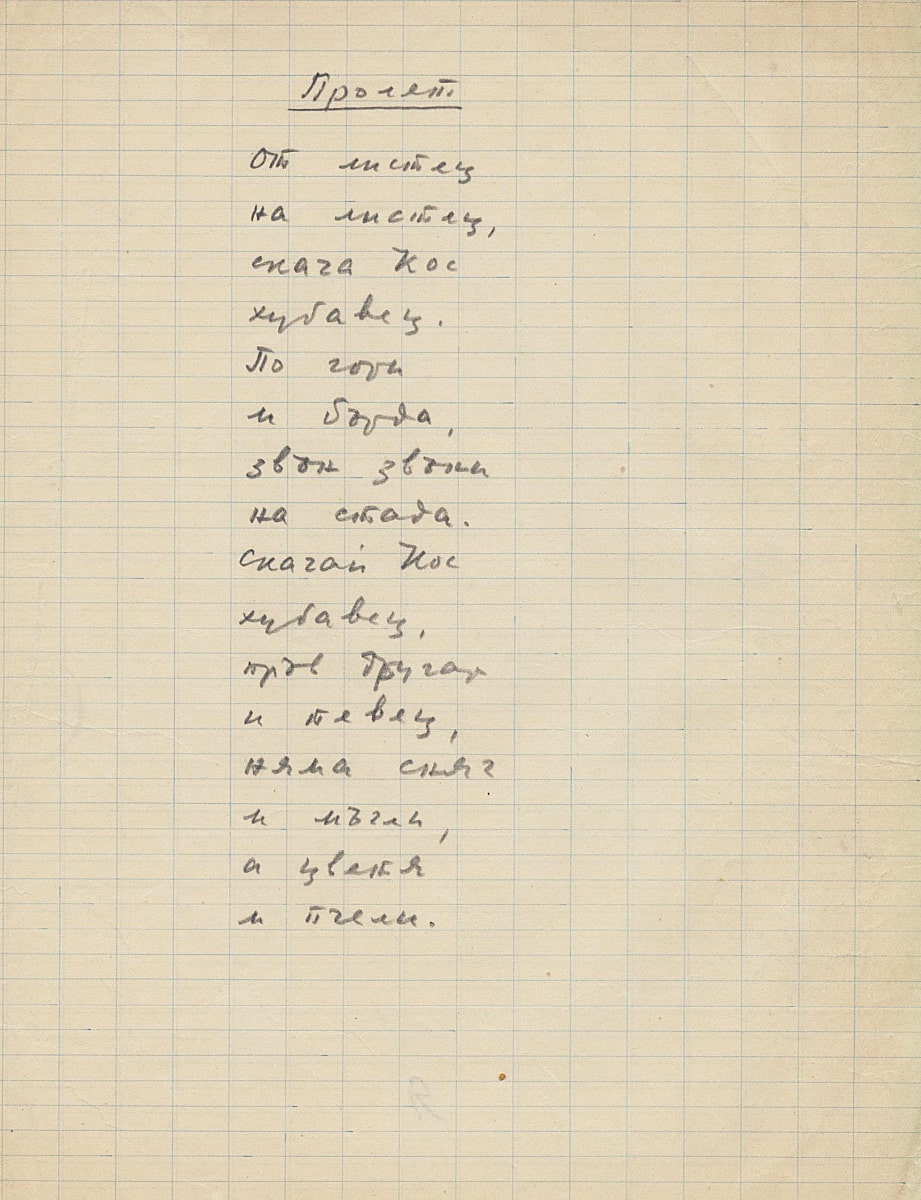 Пролет
От листец
на листец,
скача Кос
хубавец.
По гори
и бърда,
звън звъни
на стада.
Скачай Кос
хубавец,
пръв другар
и певец,
няма сняг
и мъгли,
а цветя
и пчели.